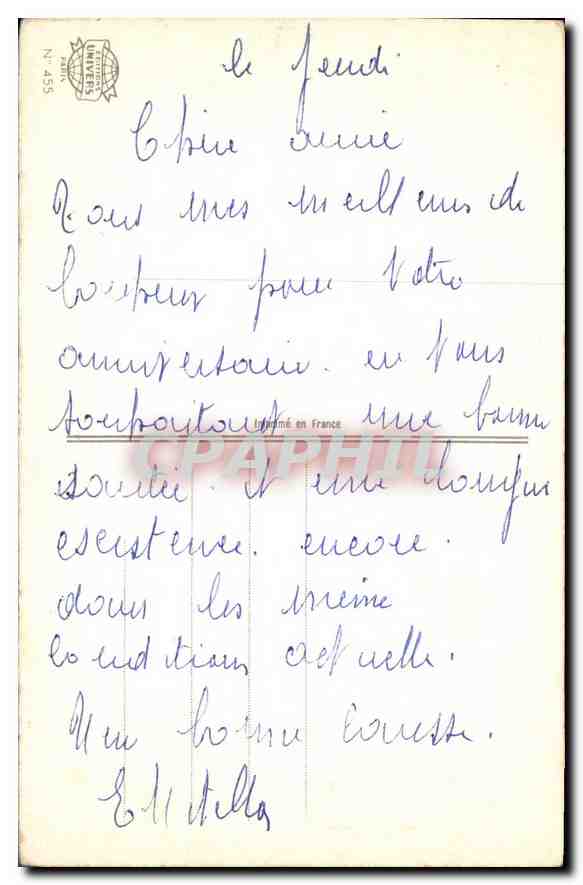 EDITIONS
UNIVERS
PARIS
N° 455
le jeudi
Chère amie
Tous mes meilleurs de
pour Votre
anniversaire. en Vous
souhaitant une bonne
Imprimé en France
CPAPHIL
santée. et une longue
existence. encore.
dans les meme
conditions actuelle.
Une bonne caresse.